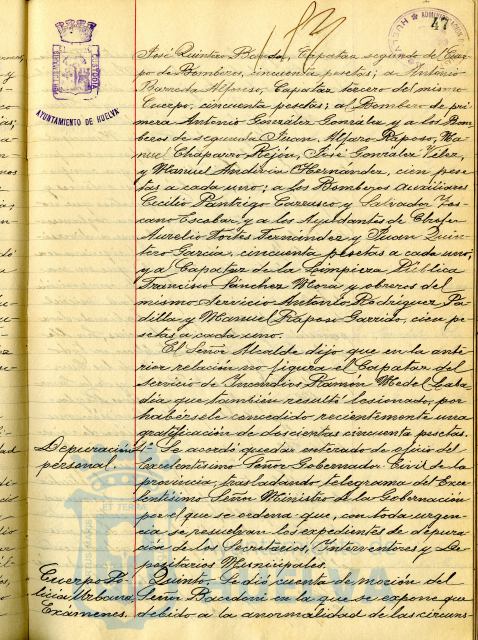 47
AYUNTAMIENTO DE HUELVA
José Quintero Banda, Capataz segundo del Cuer-
po de Bomberos, cincuenta pesetas; a Antonio
Barreda Alfonso, Capataz tercero del mismo
Cuerpo, cincuenta pesetas; al Bombero de pri-
mera Antonio González González y a los Bom-
beros de segunda Juan Alfaro Raposo, Ma-
nuel Chaparro Rejón, José González Vélez,
y Manuel Andivia Hernández, cien pese-
tas a cada uno; a los Bomberos auxiliares
Cecilio Pantrigo Carrasco y Salvador Tos-
cano Escobar y a los Ayudantes de Chofer
Aurelio Fortes Fernández y Juan Quin-
tero García, cincuenta pesetas a cada uno;
y al Capataz de la Limpieza Pública
Francisco Sánchez Mora y obreros del
mismo Servicio Antonio Rodríguez Pa-
dilla y Manuel Raposo Garrido, cien pe-
setas a cada uno.
El Señor Alcalde dijo que en la ante-
rior relación no figura el Capataz del
servicio de Incendios Ramón Medel
que también resultó lesionado, por
habérsele concedido recientemente una
gratificación de doscientas cincuenta pesetas.
Depuración
personal.
Se acordó quedar enterado de oficio del
Excelentísimo Señor Gobernador Civil de la
provincia, trasladando telegrama del Exce-
lentísimo Señor Ministro de la Gobernación
por el que se ordena que, con toda urgen-
cia se resuelvan los expedientes de depura-
ción de los Secretarios, Interventores y De-
positarios Municipales.
Cuerpo Po-
licía Urbana
Exámenes.
Quinto. Se dió cuenta de moción del
Señor Bacedoni en la que se expone que
debido a la anormalidad de las circuns-